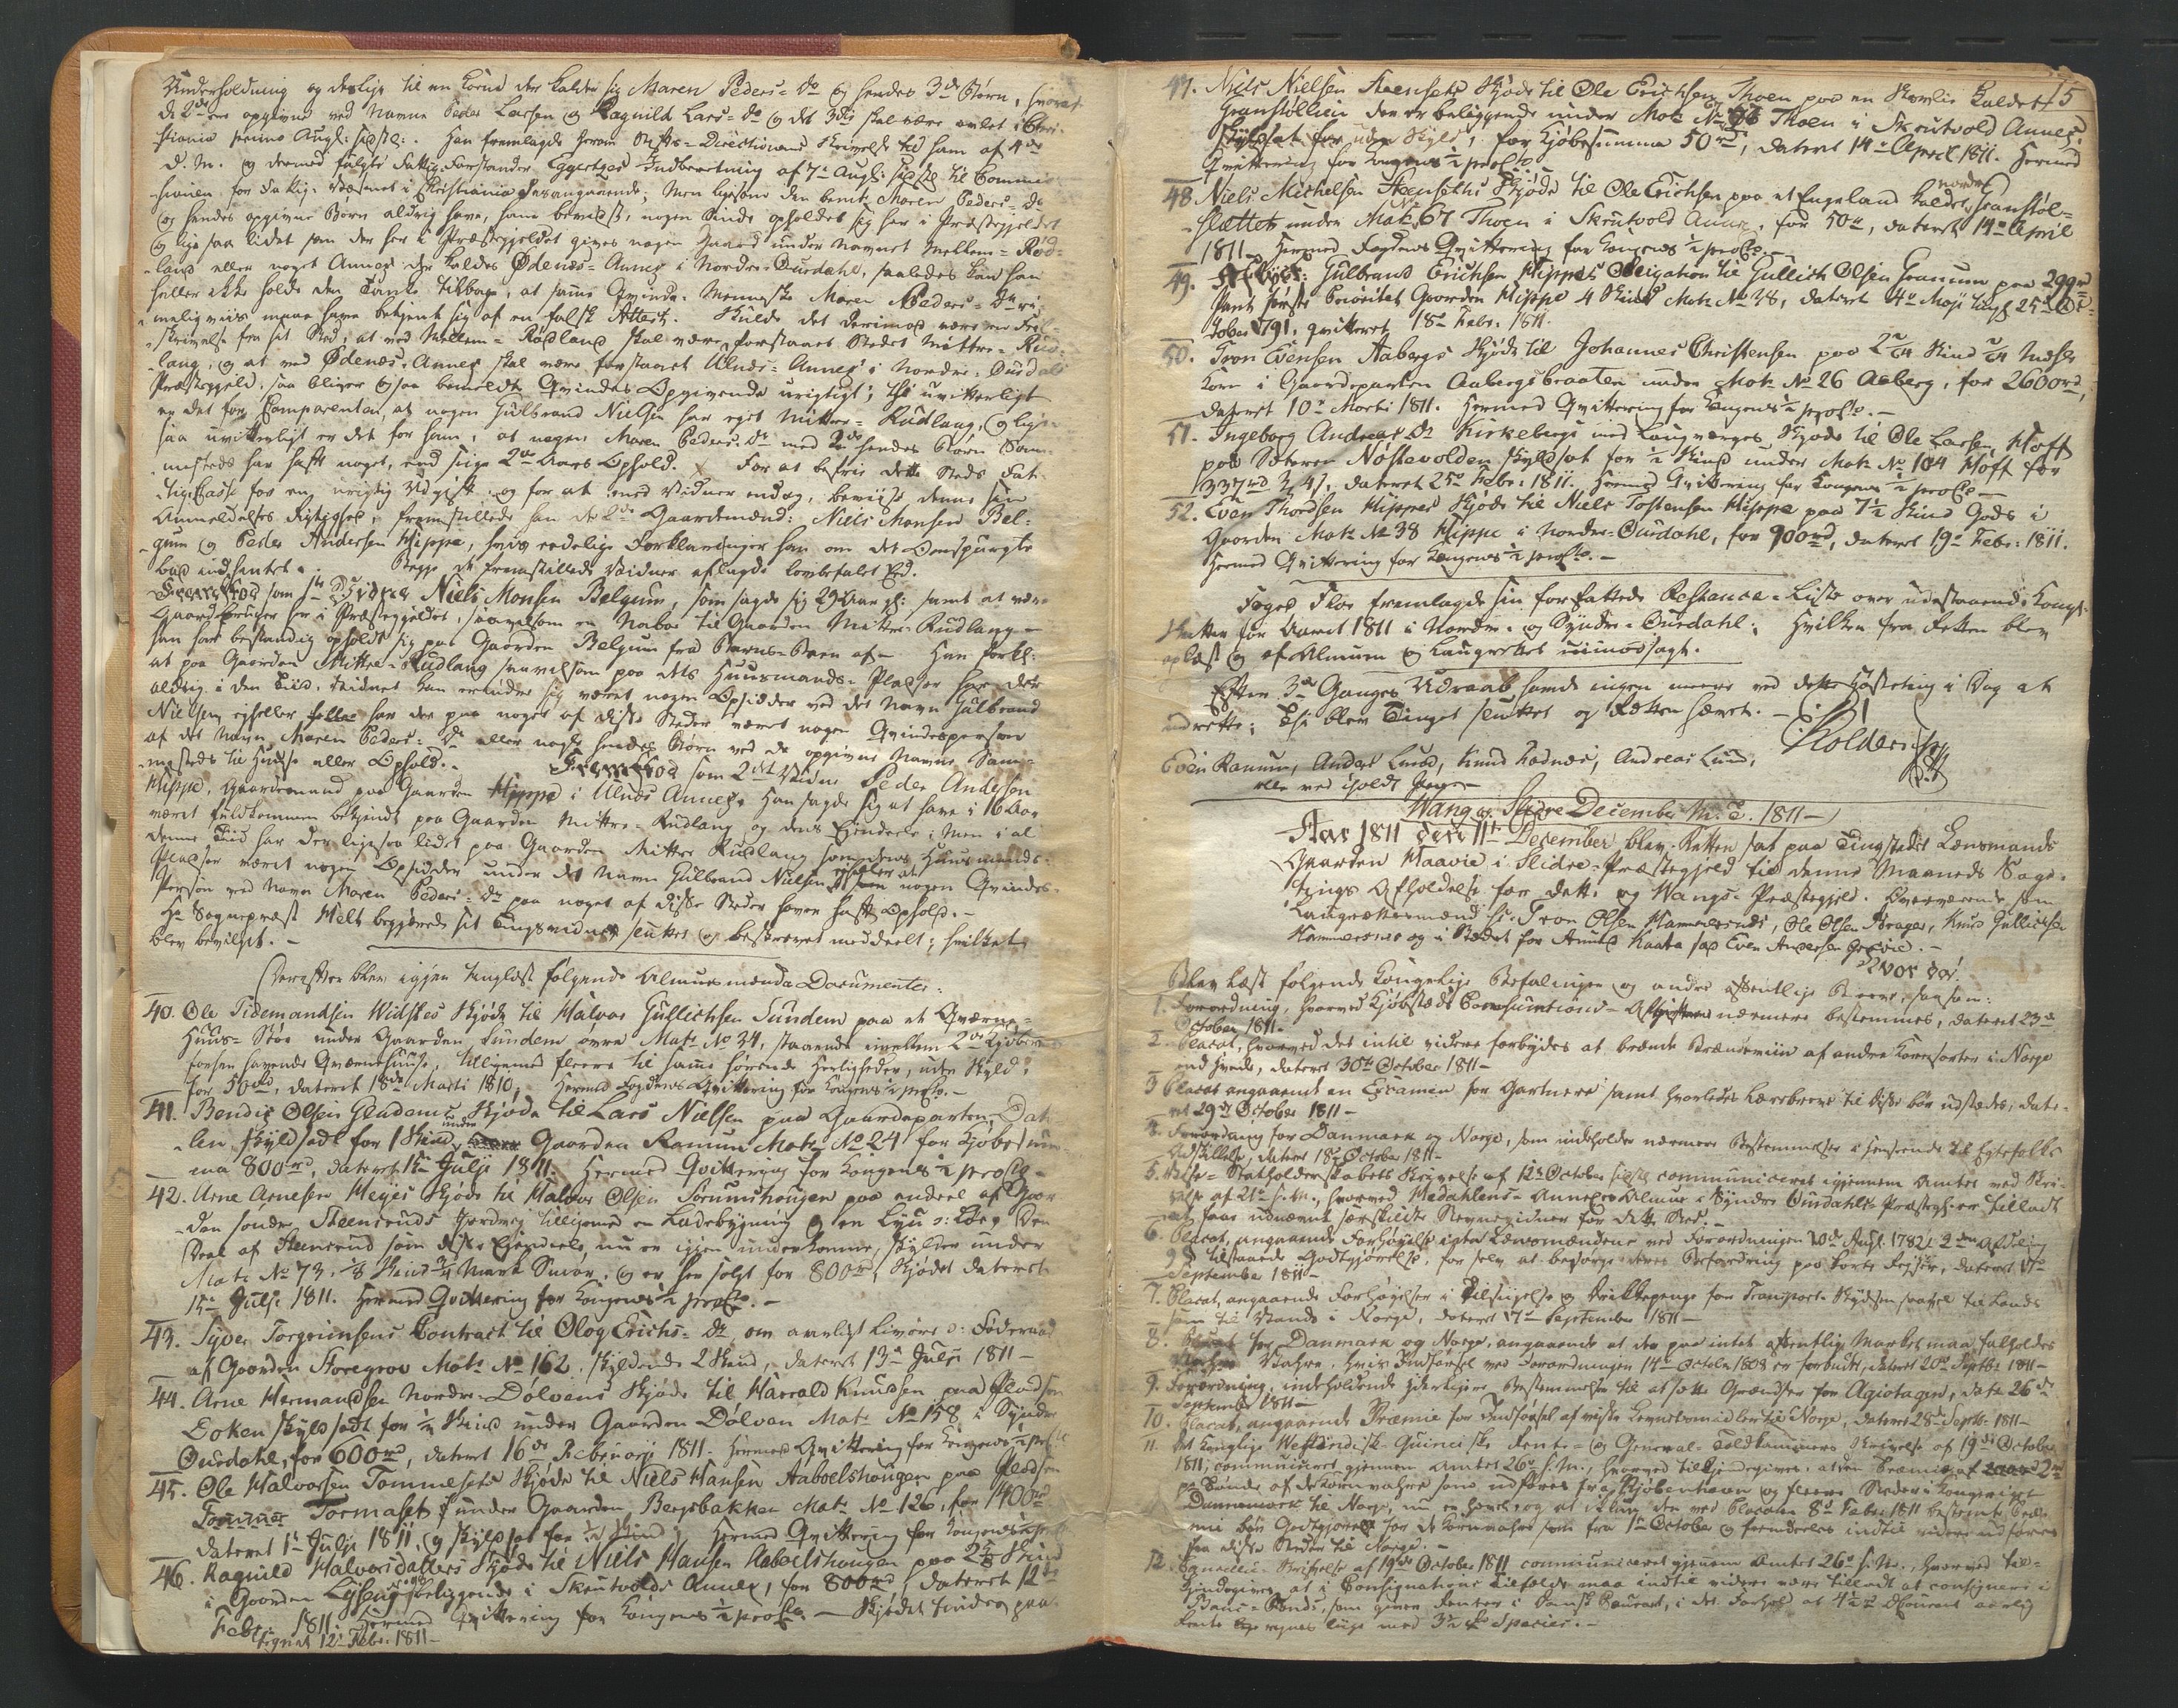 Underholdning og deslige til en Qvind der kalder sig Maren Peders=Dr og hendes 3de Børn, hvoraf
de 2de ere opgivne ved Navne Peder Larsen og Ragnild Lars=Dr og det 3die skal være avlet i Chri-
stiania primo Augl: sidstl:. Han fremlagde herom Stifts=Directionens Skrivelse til ham af 4de
d. M. og dermed fulgte Fattig-Forstander Gjertzes Indberetning af 7de Augl: sidstl: til Commis-
sionen for Fattig-Væsenet i Christiania desangaaende; Men ligesom den bemte Maren Peders=Dr
og hendes opgivne Børn aldrig have, ham beviist, nogen Sinde opholdet sig her i Præstegjeldet
og lige saa lidet som der her i Præstegjeldet gives nogen Gaard under Navnet Mellem=Rød-
land eller noget Annex der kaldes Ødenæs=Annex i Nordre=Ourdahl, saaledes kan han
heller ikke holde den Tanke tilbage, at samme Qvinde-Menneske Maren Peders=Dr ri-
meligviis maae have betjent sig af en falsk Attest. Skulde det derimod være en Feil-
skrivelse fra sit Sted, at ved Mellem=Rødland skal være forstaaet Stedet Mittre=Rud-
lang, og at ved Ødenæs=Annex skal være forstaaet Ulnæs=Annex i Nordre=Ourdals
Præstegjeld, saa bliver og saa bemeldte Qvindes Opgivende urigtigt; thi uvitterligt
er det for Comparenten, at nogen Gulbrand Nielsen har eyet Mittre=Rudlang, og lige-
saa uvitterligt er det for ham, at nogen Maren Peders-Dr med 2de hendes Børn Sam-
mesteds har haft noget, end sige 2de Aars Ophold. For at befrie dette Steds Fat-
tig-Casse for en urigtig Udgift, og for at med Vidner endog, beviise denne sin
Anmeldelses Rigtighed, fremstillede han de 2de Gaardmænd: Niels Monsen Bel-
gum og Peder Andersen Hippe, hvis eedelige Forklaringer han om det Omspurgte
bad indhentet. Begge de fremstillede Vidner aflagde lovbefalet Eed.
Fremstod som 1te Vidne Niels Monsen Belgum, som sagde sig 29 Aar gl: samt at være
Gaardbruger her i Præstegjeldet, saavelsom en Naboe til Gaarden Mittre-Rudlang -
han har bestandig opholdt sig paa Gaarden Belgum fra Barns-Been af - Han forkl:
at paa Gaarden Mittre-Rudlang saavelsom paa dets Huusmands-Pladser har der
aldrig i den Tiid, Vidnet kan erindre sig været nogen Opsidder ved det Navn Gulbrand
Nielsen, ejheller har der paa noget af disse Steder været nogen Qvindesperson
af det Navn Maren Peders-Dr eller nogle hendes Børn ved de opgivne Navne Sam-
mesteds til Huuse eller Ophold. - Fremstod som 2det Vidne Peder Andersen
Hippe, Gaardmand paa Gaarden Hippe i Ulnæs Annex. Han sagde sig at have i 16 Aar
været fuldkommen bekjendt paa Gaarden Mittre-Rudlang og dens Ejendeele; Men i al
denne Tiid har der ligesaa lidet paa Gaarden Mittre Rudlang som dens Huusmands-
Pladser været nogen Opsidder under det Navn Gulbrand Nielsen, ejheller at nogen Qvindes-
Person ved Navn Maren Peders=Dr paa noget af disse Steder haver haft Ophold. -
Hr Sognepræst Heltz begjærede sit Tingsvidne sluttet og beskrevet meddeelt; hvilket
blev bevilget. -
Derefter blev igjen tinglæst følgende Almuesmænds Documenter:
40. Ole Tidemandsen Widstes Skjøde til Halvor Gullichsen Sundem paa et Qværne-
Huus-Støe under Gaarden Sundem øvre Matr No 34, staaende imellem 2de
forhen havende Qværnehuuse, tilligemed fleere til samme hørende Herligheder, uden Skyld;
for 50rd, dateret 18de Marti 1810; Hermed Fogdens Qvittering for Kongens ½ proCto. -
41. Bendix Olsen Glendens Skjøde til Lars Nielsen paa Gaardeparten Dat-
len, skyldsadt for 1 Skind under Gaarden Ranum Matr No 24 for Kjøbesum-
ma 800rd, dateret 15de Julji 1811. Hermed Qvittering for Kongens ½ proCto -
42. Arne Arnesen Meyes Skjøde til Halvor Olsen Sørumshougen paa endeel af Gaar-
den søndre Steensruds Jordvej tilligemed en Ladebygning og en Lyu o: Løe, Den
Deel af Steensrud som disse Ejendeele nu er igjen underkomne, skylder under
Matr No 73, ⅛ Skind ¼ Mark Smør, og er her solgt for 800rd, Skjødet dateret
15de Julji 1811. Hermed Qvittering for Kongens ½ proCto. -
43. Syver Torgrimsens Contract til Olog Erichs-Dr, om aarligt Livøre o: Føderaad
af Gaarden Storegrov Matr No 162, skyldende 2 Skind, dateret 13de Julji 1811 -
44. Arne Hermandsen Nordre-Dølvens Skjøde til Harald Knudsen paa Pladsen
Doken skyldsadt for ½ Skind under Gaarden Dølven Matr No 158 i Syndre
Ourdahl, for 600rd, dateret 16de Februarji 1811. Hermed Qvittering for Kongens ½ proCto
45. Ole Halvorsen Tommesets Skjøde til Niels Hansen Aaboelshougen paa Pladsen
Tommer Tormaset under Gaarden Bergsbakken Matr No 126, for 1400rd
dateret 1te Julji 1811, og skyldsat for ½ Skind; Hermed Qvittering for Kongens ½ proCto
46. Ragnild Halvorsdatters Skjøde til Niels Hansen Aaboelshougen paa 2⅓ Skind
i Gaarden Lyseng beliggende i Skrutvolds Annex, for 800rd, dateret 12te
Febr: 1811. Hermed Qvittering for Kongens ½ proCto. - Skjødet findes paa-
tegnet 12te Febr. 1811 -
15
47. Niels Nielsen Steensets Skjøde til Ole Erichsen Thoen paa en Skovlie kaldet
Granstøllien den er beliggende under Matr No 67 Thoen i Skrutvold Annex,
skyldsat for uden Skyld, for Kjøbesumma 50rd, dateret 14de April 1811. Hermed
Qvittering for Kongens ½ proCto
48. Niels Michelsen Steensets Skjøde til Ole Erichsen paa et Engeland kaldet nordre Granstøl-
slættet under Matr No 67 Thoen i Skrutvold Annex, for 50rd, dateret 14de April
1811. Hermed Fogdens Qvittering for Kongens ½ proCto. -
49. Gulbrand Erichsen Hippes Obligation til Gullich Olsen Granum paa 299rd
Pant første Prioritet Gaarden Hippe 4 Skind Matr No 38, dateret 4de Maji tingl 25de Oc-
tober 1791. qvitteret 18de Febr. 1811.
50. Tron Evensen Aabergs Skjøde til Johannes Christensen paa 2 Skind
Korn i Gaardeparten Aabergsbraaten under Matr No 26 Aaberg, for 2600rd,
dateret 10de Marti 1811. Hermed Qvittering for Kongens ½ proCto. -
51. Ingeborg Andreas-Dr Kirkebergs med Laugværges Skjøde til Ole Larsen Hoff
paa Sæteren Nøstevolden skyldsat for ½ Skind under Matr No 104 Hoff for
337rd 2 47, dateret 25de Febr: 1811. Hermed Qvittering for Kongens ½ proCto -
52. Even Thordsen Hippes Skjøde til Niels Tostensen Hippe paa 7½ Skind Gods i
Gaarden Matr No 38 Hippe i Nordre-Ourdahl, for 900rd, dateret 19de Febr: 1811.
Hermed Qvittering for Kongens ½ proCto. -
Foged Floe fremlagde sin forfattede Restance-Liste over udestaaende Kongl:
Skatter for Aaret 1811 i Nordre- og Syndre-Ourdahl; Hvilken fra Retten blev
oplæst og af Almuen og Laugrettet uimodsagt.
Efter 3de Ganges Udraab havde ingen meere ved dette Høsteting i Dag at
indrette; Thi blev Tinget sluttet og Retten hævet. -
C. Kolderup
Even Ranum, Anders Lund, Knud Hadnes, Andreas Lund,
alle ved iholdt Pen -
Wang og Slidre December M. T. 1811 -
Aar 1811 den 11te December blev Retten sat paa Tingstedet Lænsmands
Gaarden Haavie i Slidre-Præstegjeld til denne Maaneds Sage-
tings Afholdelse for dette og Wangs-Præstegjeld. Overværende som
Laugrettesmænd: Tron Olsen Hammersnæs, Ole Olsen Brager, Knud Gullichsen
Hammersnæs og i Stedet for Amund Kaata sad Even Andersen Grøvie. -
Hvor da
Blev Læst følgende Kongelige Befalinger og andre offentlige Breve, saasom:
1. Forordning, hvorved Kjøbstæds Consumtions-Afgiften nærmere bestemmes, dateret 23de
October 1811 -
2. Placat, hvorved det intil videre forbydes at brænde Brændeviin af andre Kornsorter i Norge
end Hvede, dateret 30te October 1811 -
3. Placat angaaende en Examen for Gartnere samt hvorledes Lærebreve til disse bør udstædes, date-
ret 29de October 1811 -
4. Forordning for Danmark og Norge, som indeholder nærmere Bestemmelser i Henseende til Egtefolks
Adskillelse, dateret 18de October 1811 -
5. Vice-Statholderskabets Skrivelse af 12te October sidstl, communiceret igjennem Amtet ved Skri-
velse af 21de s. M., hvorved Hedahlens-Annexes Almue i Syndre Ourdahls Præstegj: er tilladt
at faae udnævnt særskildte Stevnevidner for dette Sted. -
6. Placat, angaaende Forhøjelse i den Lænsmændene ved Forordningen 10de Augl. 1782, 2den Afdeling
9 § tilstaaede Godtgjørelse, for selv at besørge deres Befordring paa korte Rejser, dateret 17de
September 1811 -
7. Placat, angaaende Forhøjelser i Tilsigelse- og Drikkepenge for Transport-Skydsen saavel til Lands
som til Vands i Norge, dateret 17de September 1811 -
8. Placat for Danmark og Norge, angaaende at der paa intet offentlig Marked maa falholdes
Vahre, hvis Indførsel ved Forordningen 14de October 1808 er forbudt, dateret 20de Septbr 1811 -
9. Forordning, indeholdende yderligere Bestemmelser til at sætte Grændser for Agiotagen, datr 26de
September 1811 -
10. Placat, angaaende Præmie for Indførsel af visse Levnetsmidler til Norge, dateret 28de Septbr: 1811 -
11. Det Kongelige Westindisk-Guineiske Rente- og General-Toldkammers Skrivelse af 19de October
1811, communiceret gjennem Amtet 26de s. M., hvorved tilkjendegives, at den Præmie af 2rd
pr Tønde af de Kornvahre som udføres fra Kjøbenhavn og fleere Steder i Kongeriget
Dannemark til Norge, nu er hævet, og at ikkun den ved Placaten 8de Febr 1811 bestemte Præ-
mie bør Godtgjøres for de Kornvahre som fra 1te October og fremdeles indtil videre udføres
fra disse Steder til Norge. -
12. Cancellie-Skrivelse af 19de October 1811, communiceret gjennem Amtet 26de s. M., hvorved til-
kjendegives at i Consignations Tilfælde maa indtil videre være tilladt at consignere i
Finans-Fonds, som giver Renter i Dansk Courant, i det Forhold at 4½ pCt Courant aarlig
Rente regnes liige med 3½ pCt Species. -